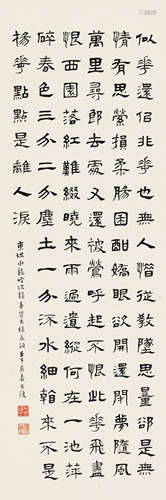 似華還似非華也無人惜從教墜思量卻是無
情有思縈損柔腸困酣嬌眼欲開還閉夢隨風
萬里尋郎去處又還被鶯呼起不恨此華飛盡
恨西園落紅難綴曉來雨過遺蹤何在一池萍
碎春色三分二分塵土一分流水細看來不是
楊華點點是離人淚
東坡水龍吟次韻章質夫楊花詞